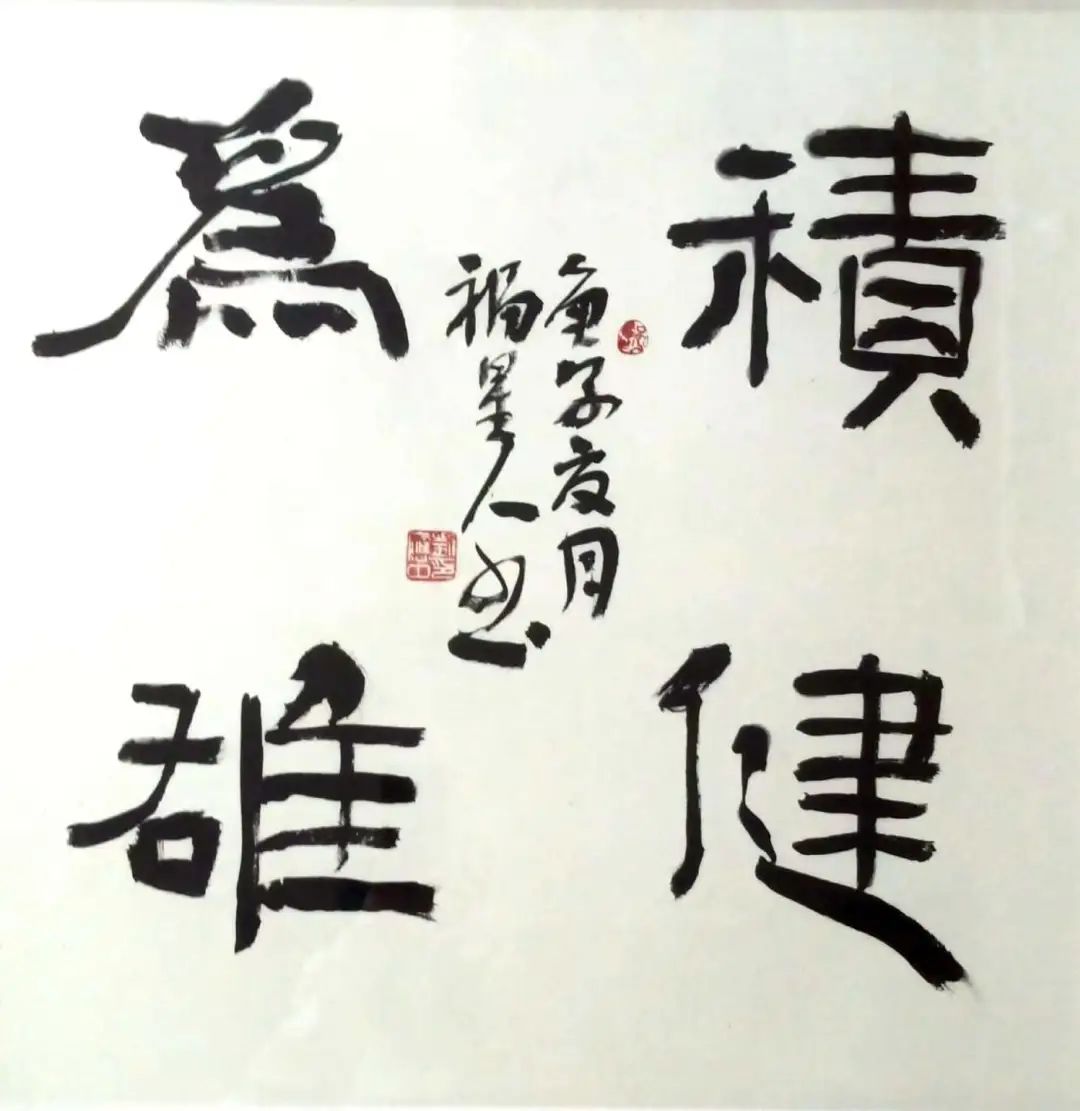 積健
為雄
庚子夏月
福星人书